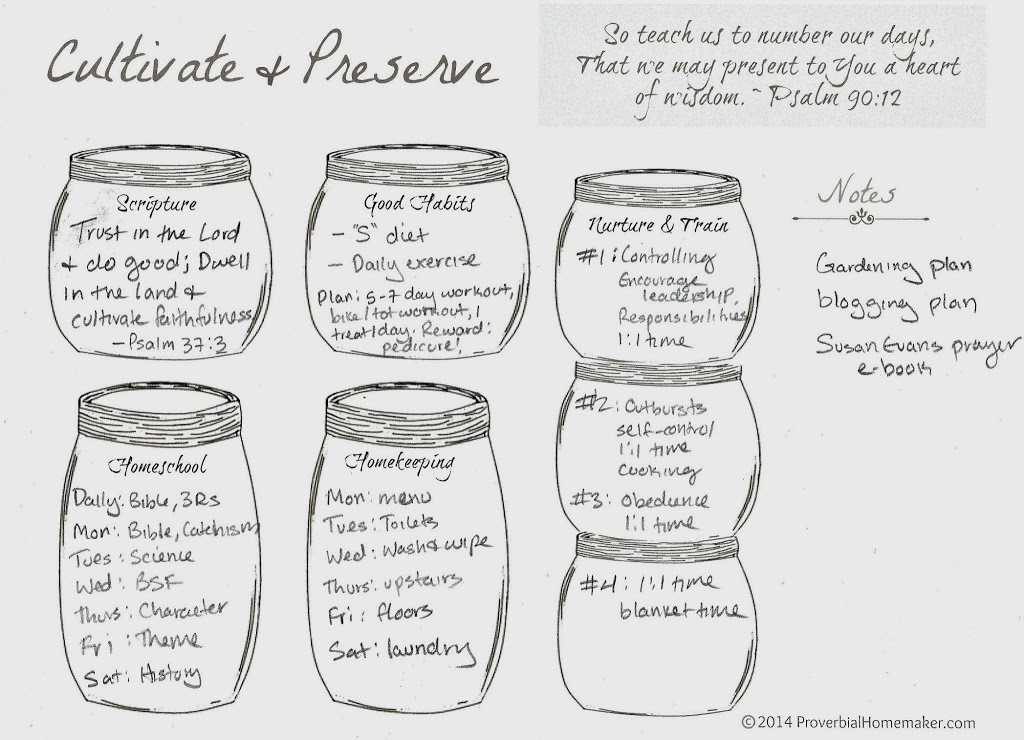 Cultivate & Preserve
So teach us to number our days,
That we may present to You a heart
of wisdom. ~ Psalm 90:12
Scripture
Trust in the Lord
& do good; Dwell
in the land &
cultivate faithfulness
- Psalm 37:3
Good Habits
- "S" diet
- Daily exercise
Plan: 5-7 day workout,
bike/tot workout, 1
treat/day. Reward:
pedicure!
Nurture & Train
#1: Controlling
Encourage
leadership.
Responsibilities
1:1 time
#2: Outbursts
self-control
1:1 time
cooking
#3: Obedience
1:1 time
#4: 1:1 time
blanket time
Notes
Gardening plan
blogging plan
Susan Evans prayer
e-book
Homeschool
Daily: Bible, 3Rs
Mon: Bible, Catchism
Tues: Science
Wed: BSF
Thurs: Character
Fri: Theme
Sat: History
Homekeeping
Mon: menu
Tues: Toilets
Wed: Wash & wipe
Thurs: upstairs
Fri: floors
Sat: laundry
© 2014 ProverbialHomemaker.com